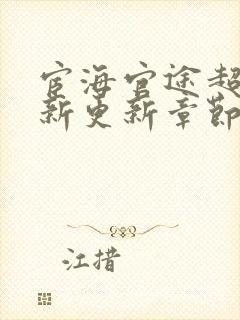 宦海官途超
新更新章节
江措